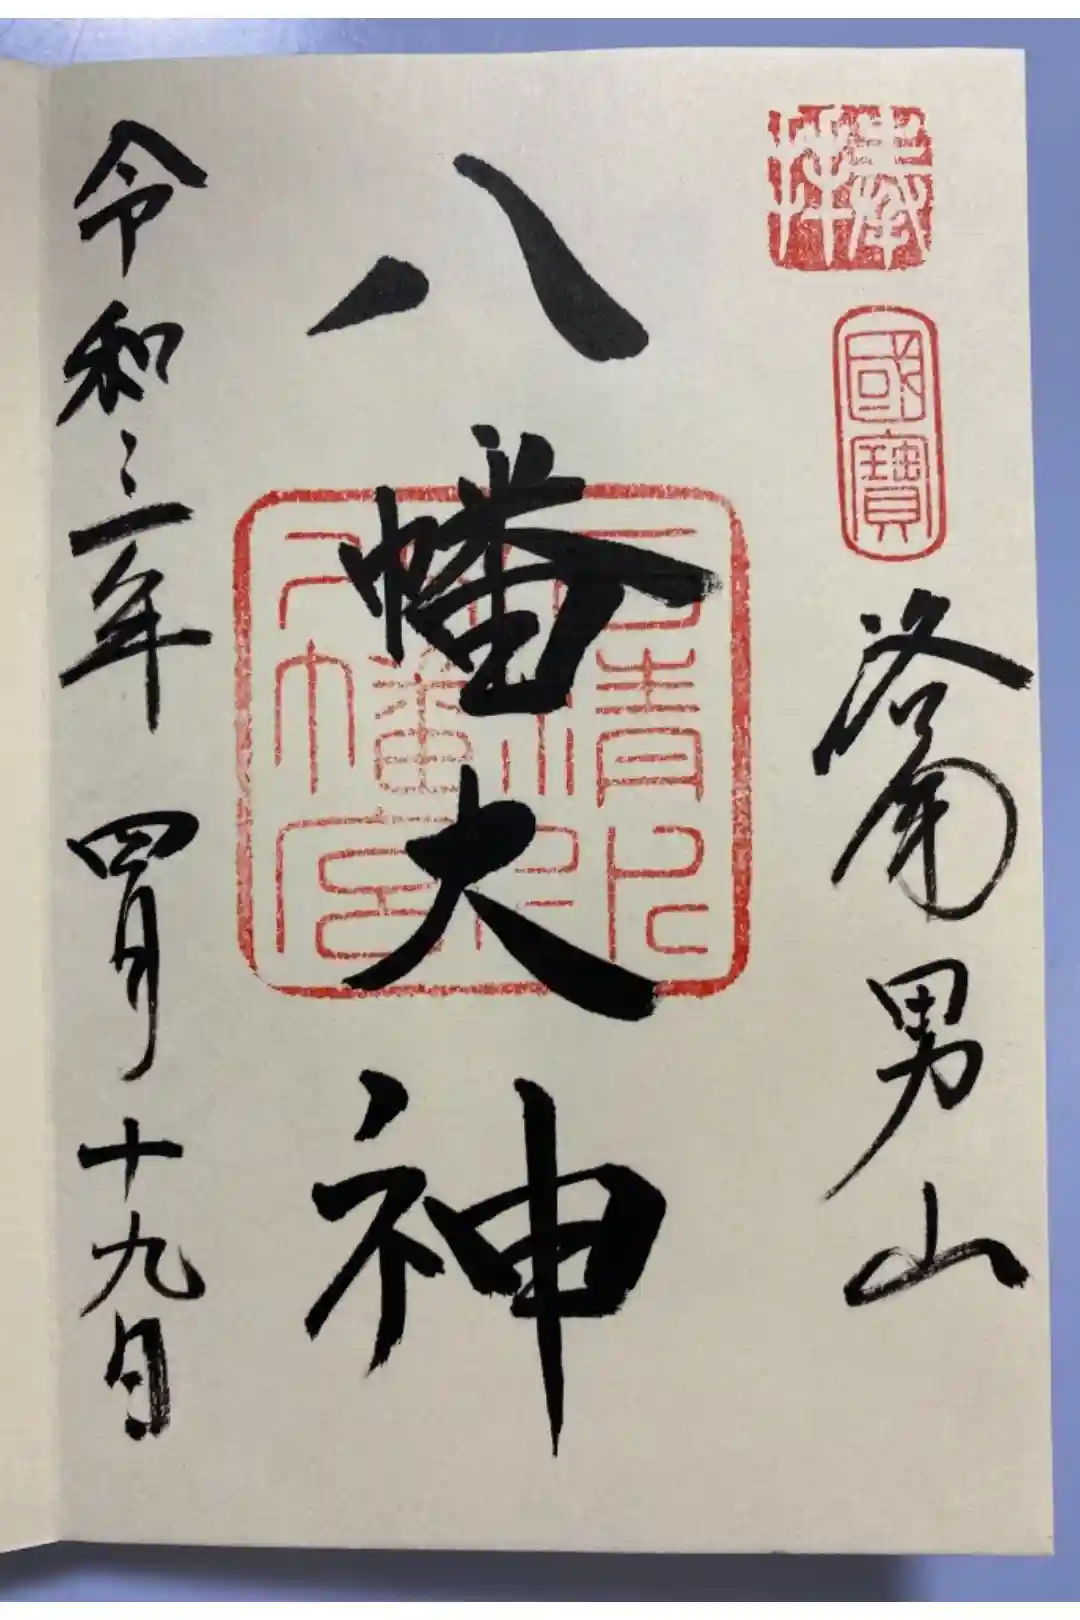 奉拝
國寶
洛南男山
八幡大神
石清水
八幡宮
令和三年四月十九日